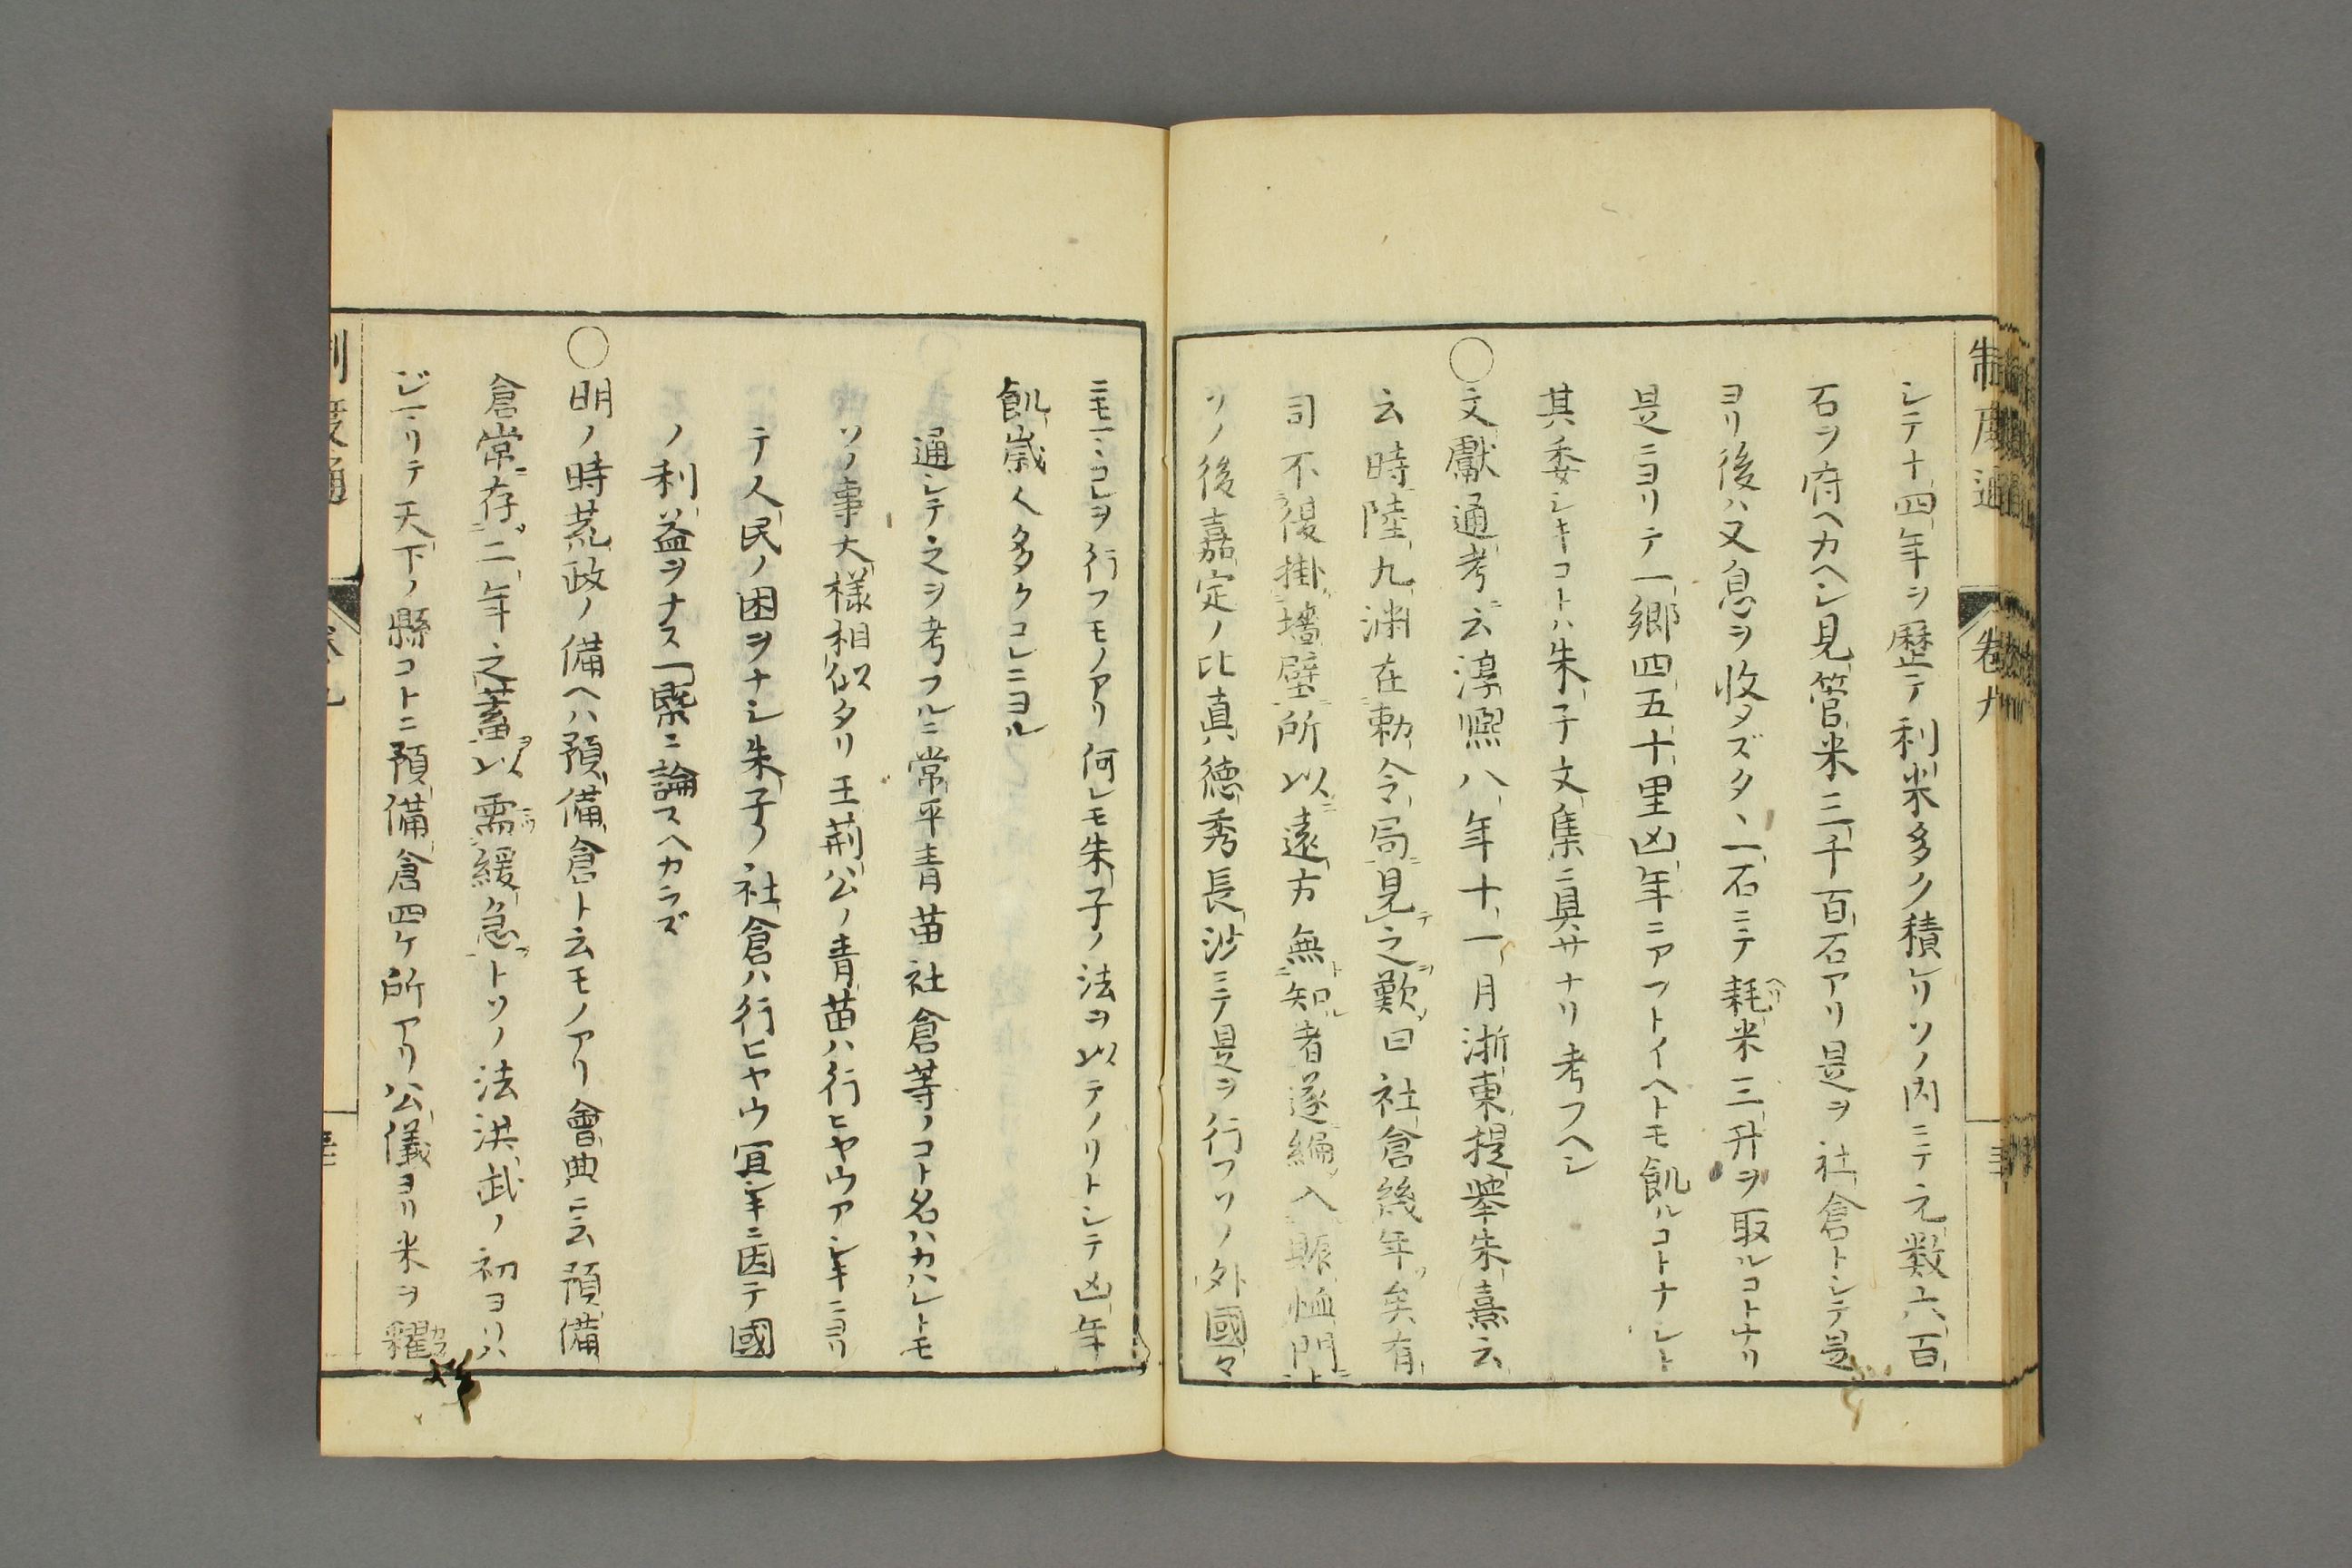 シテ十四年ヲ歴テ利米多ク積ケリソノ内ニテ元数六百
石ヲ府ヘカヘシ見管米三千百石アリ是ヲ社倉トシテ是
ヨリ後ハ又息ヲ收メズタヽ一石ニテ耗米三升ヲ取ルコトナリ
是ニヨリテ一郷四五十里凶年ニアフトイヘトモ飢ルコトナシト
其委シキコトハ朱子文集ニ具サナリ考フヘシ
○文獻通考云淳熈八年十一月浙東提擧朱熹云
云時陸九渕在勅令局見之歎曰社倉幾年矣有
司不復掛墻壁所以遠方無知者遂編入賑恤門
ソノ後嘉定ノ比真德秀長沙ニテ是ヲ行フソノ外國々
ニモコレヲ行フモノアリ何レモ朱子ノ法ヲ以テノリトシテ凶年
飢歲人多クコレニヨル
通シテ之ヲ考フルニ常平青苗社倉等ノコト名ハカハレトモ
ソノ事大様相似タリ王荊公ノ青苗ハ行ヒヤウアシキニヨリ
テ人民ノ困ヲナシ朱子ノ社倉ハ行ヒヤウ宜キニ因テ國
ノ利益ヲナス一槩ニ論スヘカラズ
○明ノ時荒政ノ備ヘハ預備倉ト云モノアリ會典ニ云預備
倉常存二年之蓄以需緩急トソノ法洪武ノ初ヨリハ
ジマリテ天下ノ縣コトニ預備倉四ケ所アリ公儀ヨリ米ヲ糴